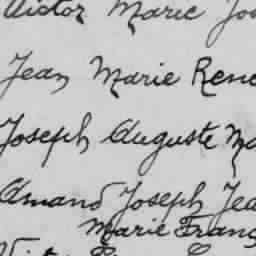 Victor Marie Jos
Jean Marie René
Joseph Auguste Ma
Amand Joseph Jea
Marie Franç